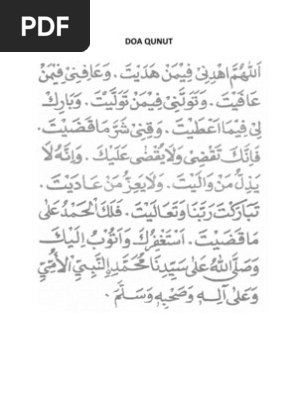 PDF
DOA QUNUT
اَللّٰهُمَّ اهْدِنِيْ فِيْمَنْ هَدَيْتَ. وَعَافِنِيْ فِيْمَنْ
عَافَيْتَ. وَتَوَلَّنِيْ فِيْمَنْ تَوَلَّيْتَ. وَبَارِكْ
لِيْ فِيْمَا اَعْطَيْتَ. وَقِنِيْ شَرَّ مَا قَضَيْتَ.
فَاِنَّكَ تَقْضِيْ وَلَا يُقْضٰى عَلَيْكَ. وَاِنَّهُ لَا
يَذِلُّ مَنْ وَالَيْتَ. وَلَا يَعِزُّ مَنْ عَادَيْتَ.
تَبَارَكْتَ رَبَّنَا وَتَعَالَيْتَ. فَلَكَ الْحَمْدُ عَلٰى
مَا قَضَيْتَ. اَسْتَغْفِرُكَ وَاَتُوْبُ اِلَيْكَ
وَصَلَّى اللهُ عَلٰى سَيِّدِنَا مُحَمَّدٍ النَّبِيِّ الْاُمِّيِّ
وَعَلٰى اٰلِهٖ وَصَحْبِهٖ وَسَلَّمَ.